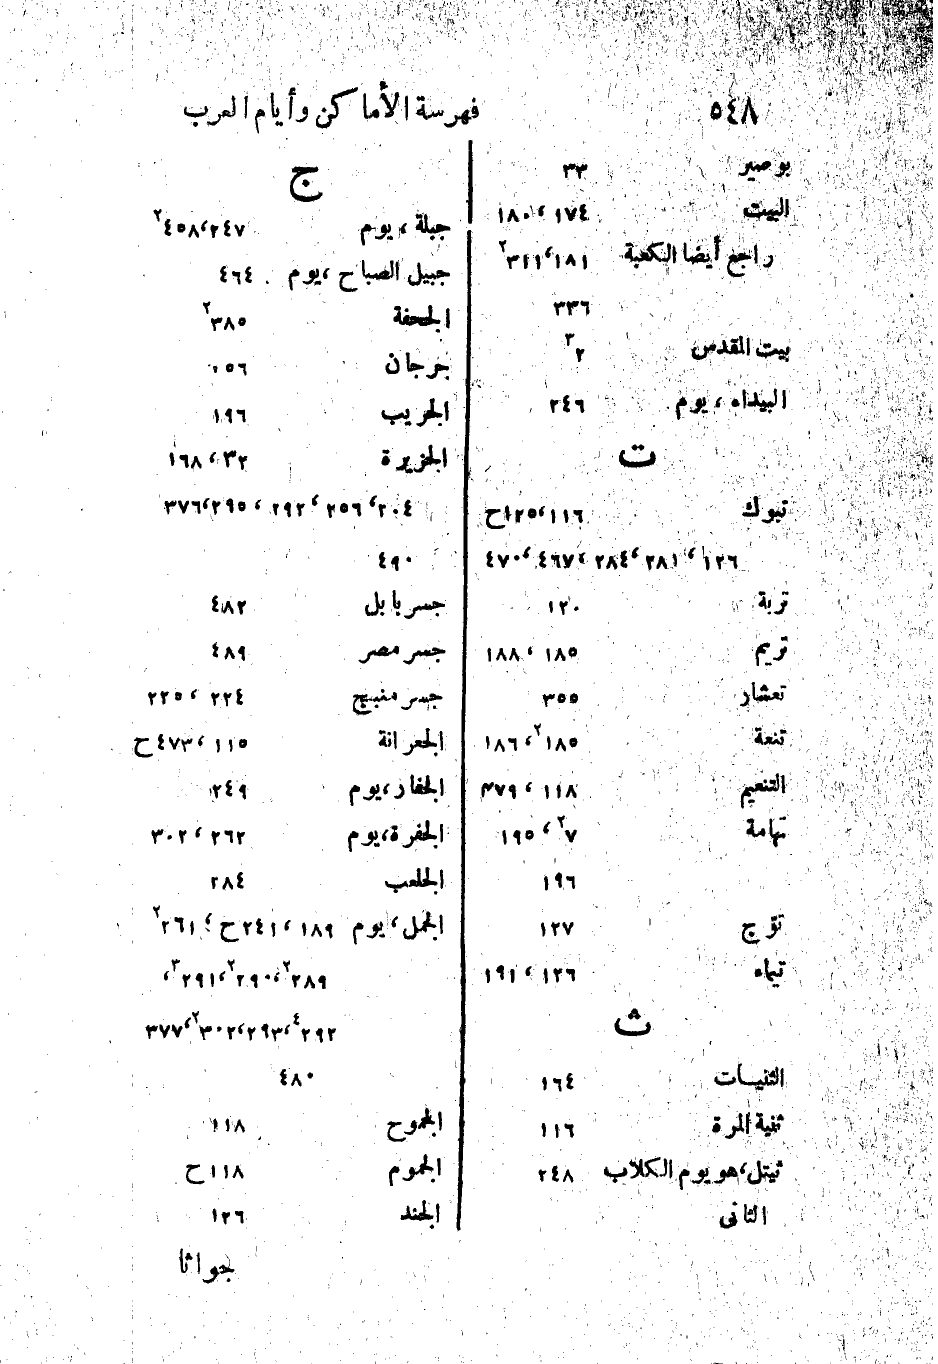 ٥٤٨
فهرسة الأماكن وأيام العرب
بوصير ٣٣
البيت ١٧٤، ١٨٠
راجع أيضا الكعبة ١٨١، ٣٢١٢
٣٣٦
بيت المقدس ٢٣
البيداء، يوم ٢٤٦
ت
تبوك ١١٦، ١٢٥ح
١٢٦، ٢٨١، ٢٨٤، ٤٦٧، ٤٧٠
تربة ١٢٠
تريم ١٨٥، ١٨٨
تعشار ٣٥٥
تنعة ١٨٥٢، ١٨٦
التنعيم ١١٨،
تهامة ٧٢، ١٩٥
١٩٦
توّج ١٢٧
تيماء ١٢٦، ١٩١
ث
الثنيات ١٦٤
ثنية المرة ١١٦
ثيتل، هو يوم الكلاب ٢٤٨
الثانى
ج
جبلة، يوم ٢٤٧، ٤٥٨٢
جبيل الصباح، يوم ٤٦٤
الجحفة ٣٨٥٢
جرجان ٠٥٦
الجريب ١٩٦
الجزيرة ٣٢، ١٦٨
٢٠٤، ٢٥٦، ٢٩٢، ٢٩٥، ٣٧٦
٤٩٠
جسر بابل ٤٨٢
جسر مصر ٤٨٩
جسر منبيج ٢٢٤، ٢٢٥
الجعرانة ١١٥، ٤٧٣ح
الجفار، يوم ٢٤٩
الجفرة، يوم ٢٦٢، ٣٠٢
الجلعب ٢٨٤
الجمل، يوم ١٨٩، ٢٤١ح، ٢٦١٢
٢٨٩٢، ٢٩٠٢، ٢٩١٣،
٢٩٢٤، ٢٩٣، ٣٠٢٢، ٣٧٧
٤٨٠
الجموح ١١٨
الجموم ١١٨ح
الجند ١٢٦
جواثا